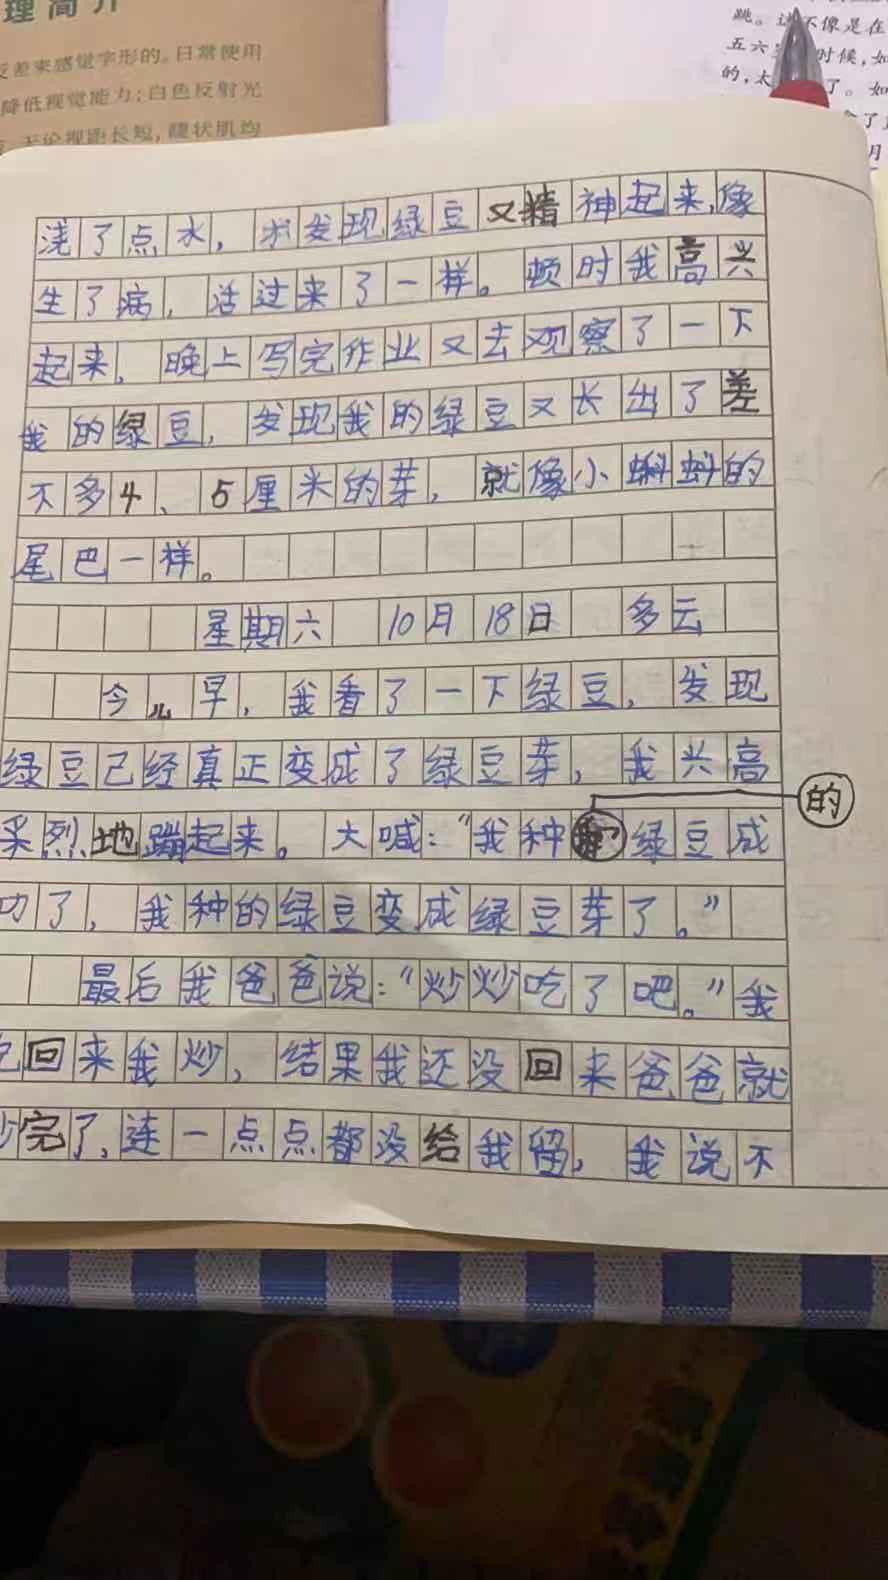 理简介
反差来感觉字形的。日常使用
降低视觉能力；白色反射光
无论视距长短，睫状肌均
跳。这不像是在
五六岁时候，如
的，太了。如
月
浇了点水，发现绿豆又精神起来，像
生了病，活过来了一样。顿时我高兴
起来，晚上写完作业又去观察了一下
我的绿豆，发现我的绿豆又长出了差
不多4、5厘米的芽，就像小蝌蚪的
尾巴一样。
星期六 10月18日 多云
今儿早，我看了一下绿豆，发现
绿豆已经真正变成了绿豆芽，我兴高
采烈地蹦起来。大喊：“我种的绿豆成
功了，我种的绿豆变成绿豆芽了。”
最后我爸爸说：“炒炒吃了吧。”我
回来我炒，结果我还没回来爸爸就
炒完了，连一点点都没给我留，我说不